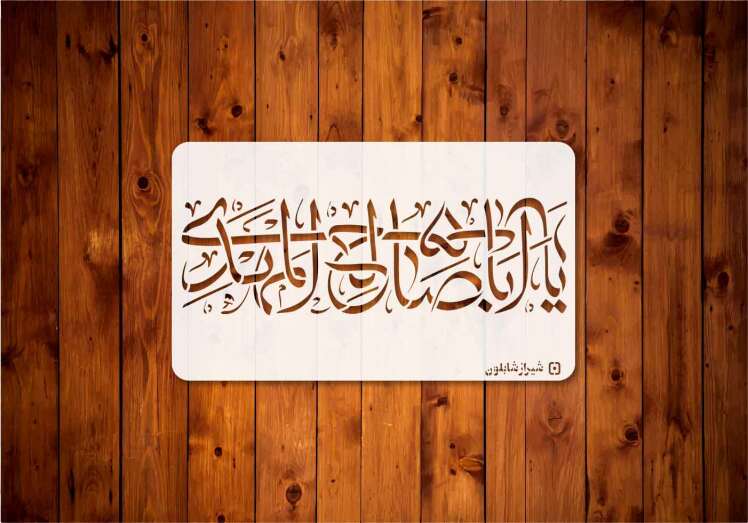 یا اباصالح المهدی
شیراز شابلون